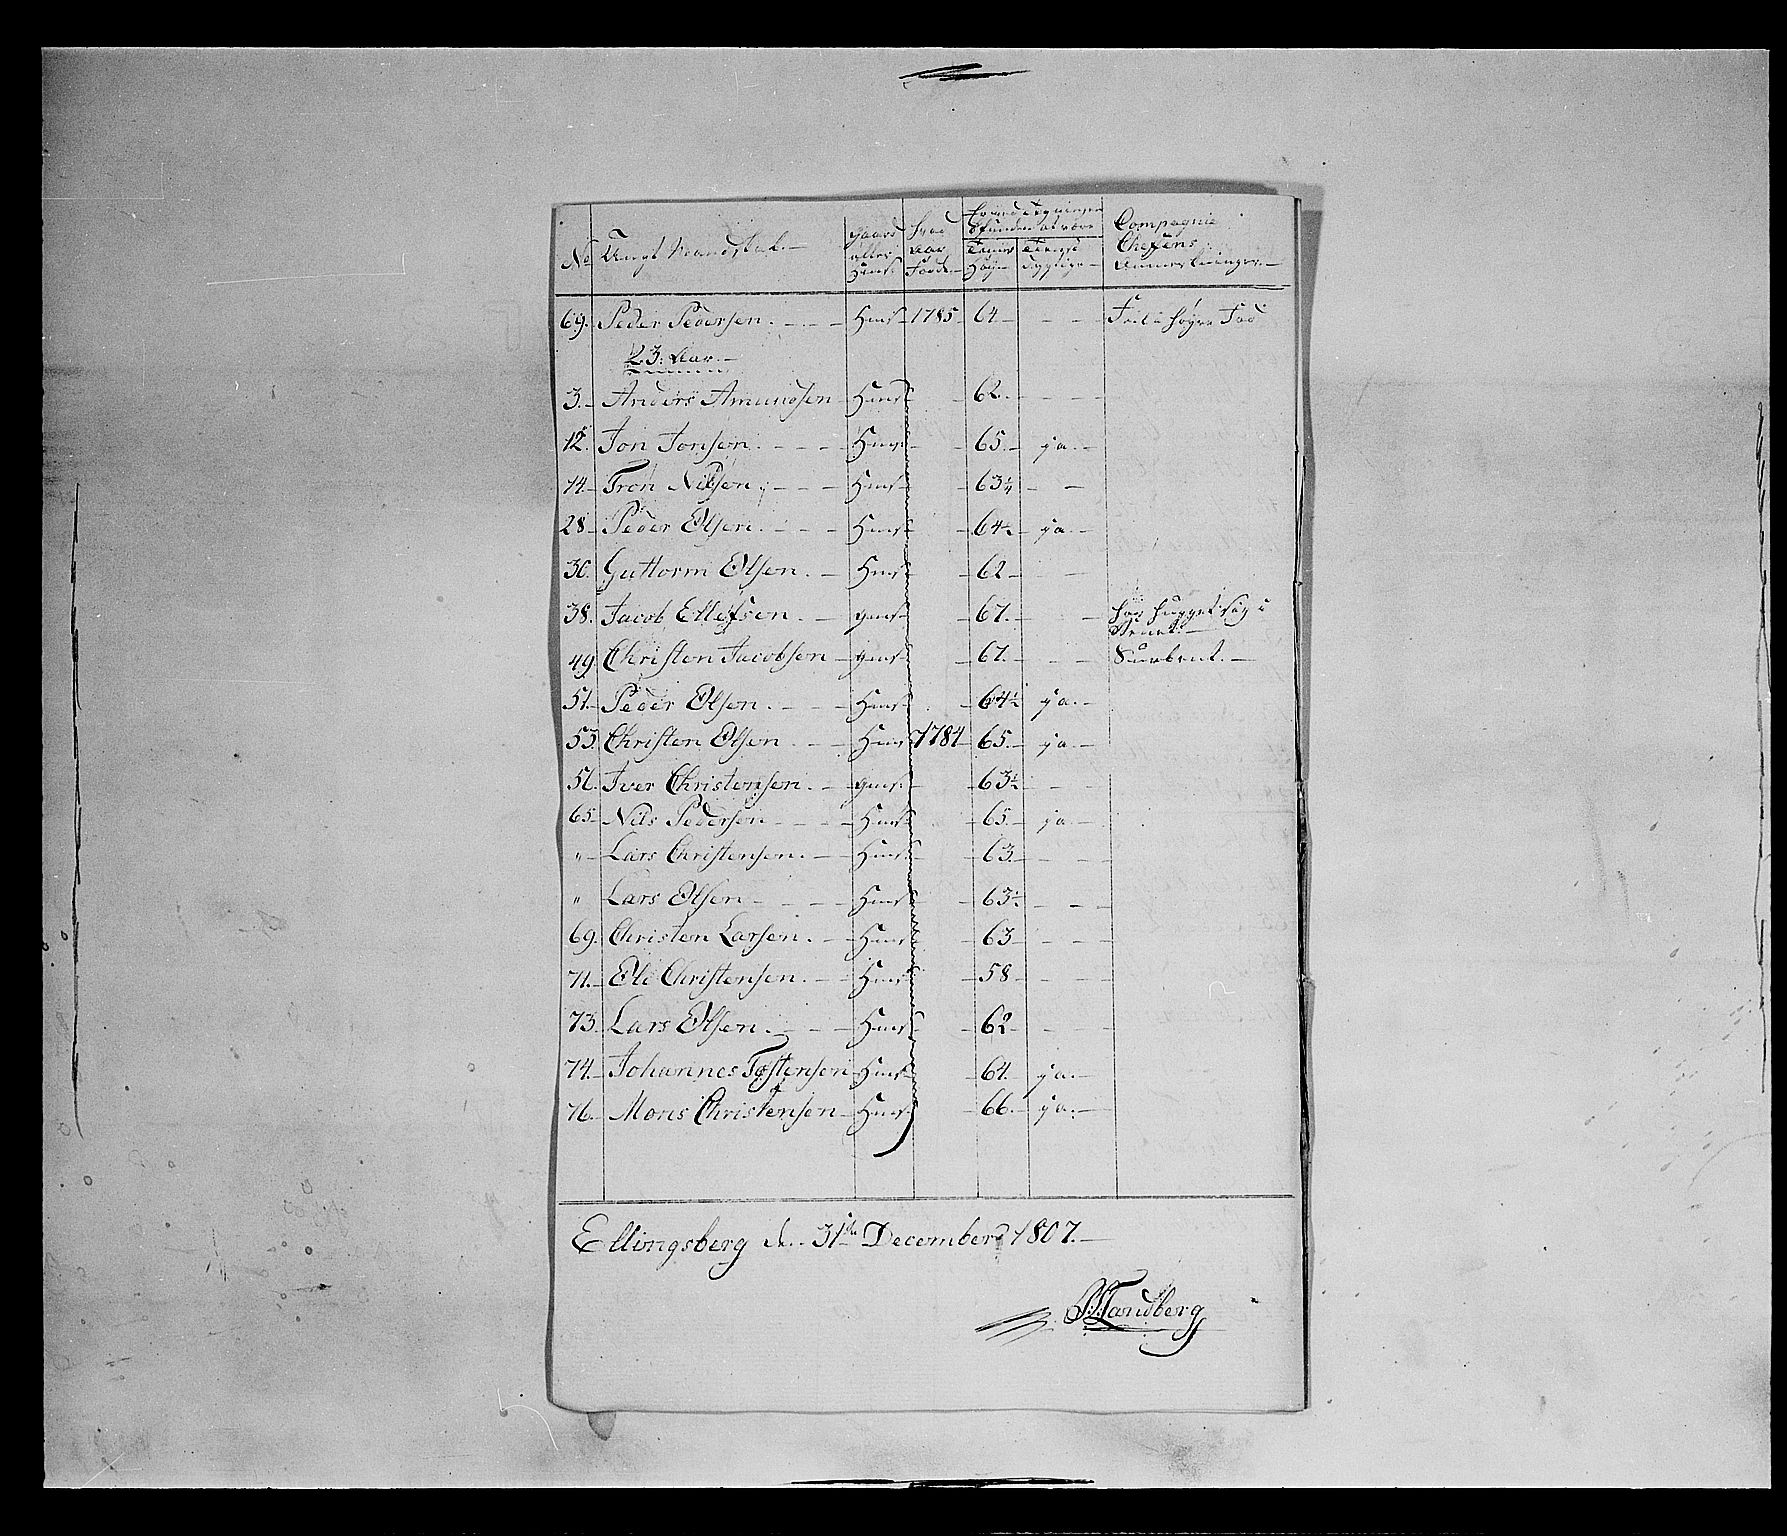 No Ungt Mandskab. Gaard eller Huus. Hvad Aar Fød. Compagnie Chefens Anmerkninger.
69. Peder Pedersen. Huus 1785 64 Feil i høyre Fod
23. Aar.
3. Anders Amundsen Huus 62.
12. Jon Jonsen Huus 65. ja.
14. Tron Nilsen Huus 63¼
28 Peder Olsen. Huus 64½ ja.
30. Guttorm Olsen. Huus 62
38. Jacob Ellefsen. Gaard 67. har hugget sig i Beenet.
49. Christen Jacobsen Gaard 67.
51. Peder Olsen. Huus 64½ ja.
53. Christen Olsen Huus 1784 65. ja.
56. Iver Christensen. Gaard 63½
65. Nils Pedersen Huus 65. ja.
" Lars Christensen. Huus 63.
" Lars Olsen Huus 63½
69. Christen Larsen. Huus 63
71. Ole Christensen. Huus 58
73. Lars Olsen. Huus 62
74. Johannes Tostensen Huus 64. ja.
76. Mons Christensen Huus 66. ja.
Ellingsberg de. 31te December 1807.
Landberg